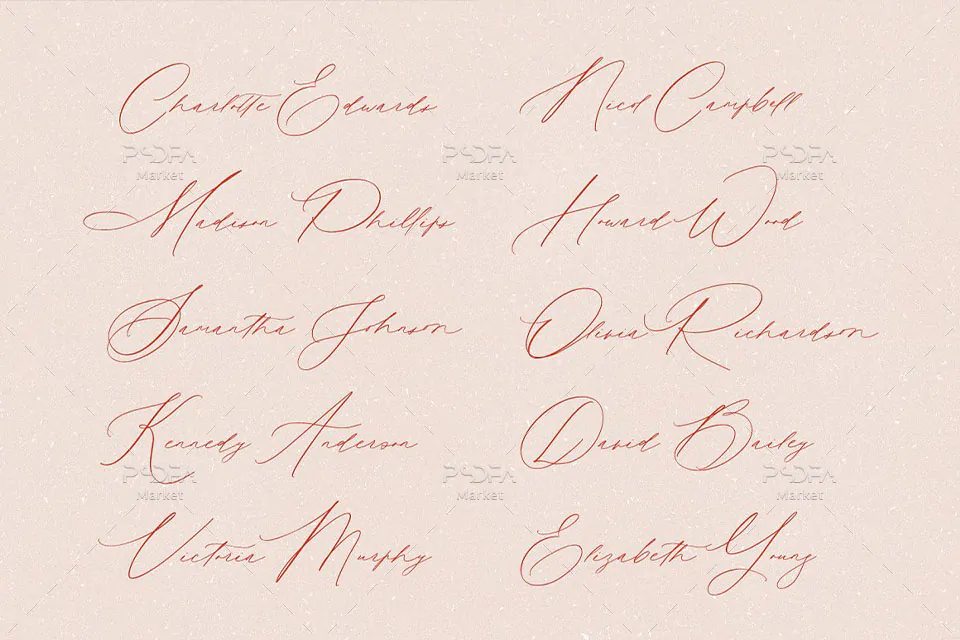 Charlotte Edwards
Nicol Campbell
PSDFA Market
PSDFA Market
PSDFA Market
Madison Phillips
Howard Wood
Samantha Johnson
Olivia Richardson
Kennedy Anderson
David Bailey
PSDFA Market
PSDFA Market
PSDFA Market
Victoria Murphy
Elizabeth Young